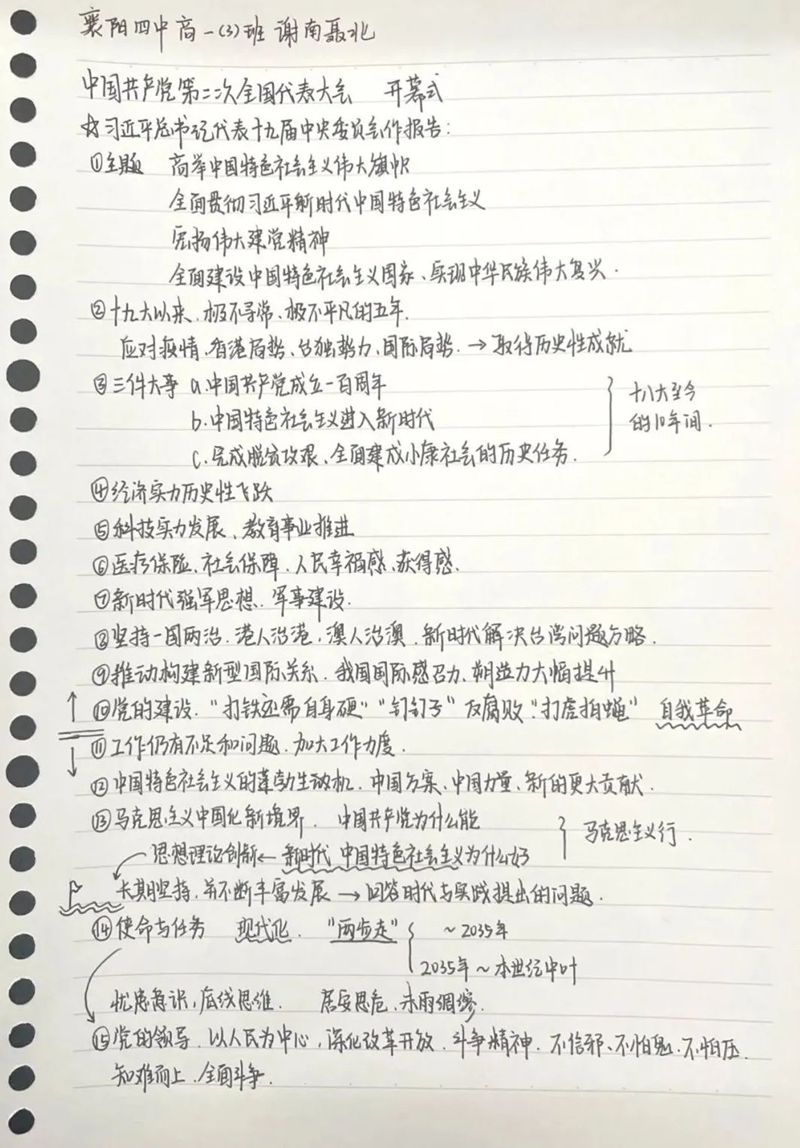 襄阳四中高一(3)班 谢南聂北
中国共产党第二次全国代表大会 开幕式
☆习近平总书记代表十九届中央委员会作报告:
①主题 高举中国特色社会主义伟大旗帜
全面贯彻习近平新时代中国特色社会主义
弘扬伟大建党精神
全面建设中国特色社会主义国家、实现中华民族伟大复兴.
②十九大以来、极不寻常、极不平凡的五年.
应对疫情、香港局势、台独势力、国际局势. → 取得历史性成就
③三件大事 a.中国共产党成立一百周年
b.中国特色社会主义进入新时代
c.完成脱贫攻艰、全面建成小康社会的历史任务.
十八大至今
的10年间.
④经济实力历史性飞跃
⑤科技实力发展、教育事业推进
⑥医疗保险、社会保障、人民幸福感、获得感.
⑦新时代强军思想. 军事建设.
⑧坚持一国两治. 港人治港, 澳人治澳. 新时代解决台湾问题方略.
⑨推动构建新型国际关系. 我国国际感召力、塑造力大幅提升
⑩党的建设. "打铁还需自身硬" "钉钉子" 反腐败 "打虎拍蝇" 自我革命
⑪工作仍有不足和问题. 加大工作力度.
⑫中国特色社会主义的蓬勃生机. 中国方案、中国力量、新的更大贡献.
⑬马克思主义中国化新境界. 中国共产党为什么能
马克思主义行.
思想理论创新 ← 新时代 中国特色社会主义为什么好
长期坚持, 并不断丰富发展 → 回答时代与实践提出的问题.
⑭使命与任务 现代化. "两步走" ~2035年
2035年~本世纪中叶
忧患意识, 底线思维. 居安思危、未雨绸缪.
⑮党的领导. 以人民为中心, 深化改革开放. 斗争精神. 不信邪、不怕鬼、不怕压.
知难而上、全面斗争.